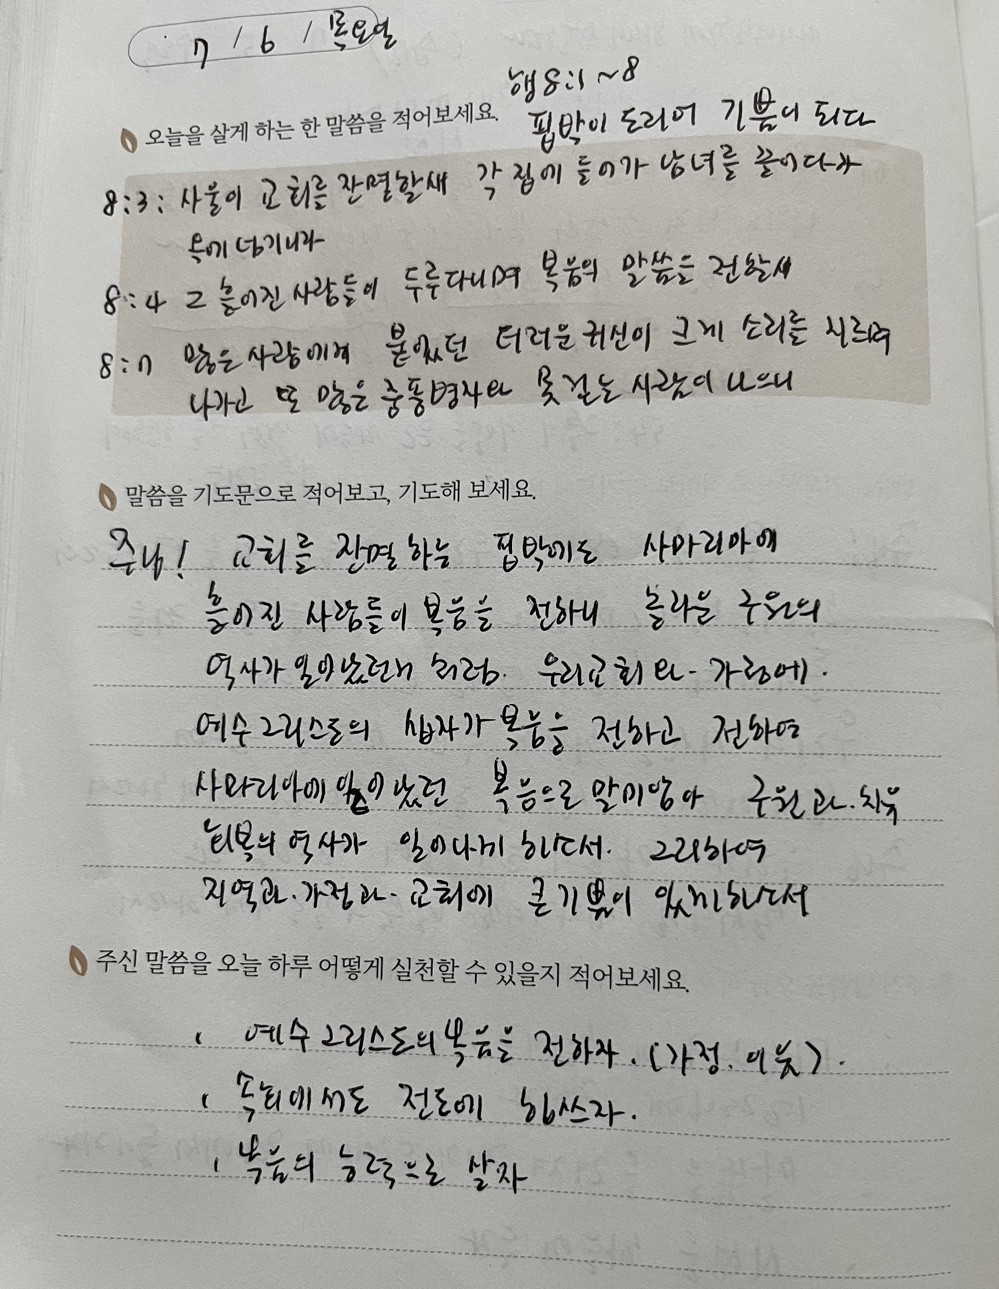 7 / 6 / 목요일
행 8:1 ~ 8
오늘을 살게 하는 한 말씀을 적어보세요.
핍박이 도리어 기쁨이 되다
8:3: 사울이 교회를 잔멸할새 각 집에 들어가 남녀를 끌어다가
옥에 넘기니라
8:4 그 흩어진 사람들이 두루다니며 복음의 말씀을 전할새
8:7 많은 사람에게 붙었던 더러운 귀신이 크게 소리를 지르며
나가고 또 많은 중풍병자와 못 걷는 사람이 나으니
말씀을 기도문으로 적어보고, 기도해 보세요.
주님! 교회를 잔멸하는 핍박에도 사마리아에
흩어진 사람들이 복음을 전하니 놀라운 구원의
역사가 일어났던것 처럼. 우리교회와 - 가정에.
예수그리스도의 십자가 복음을 전하고 전하여
사마리아에 일어났던 복음으로 말미암아 구원과. 치유
회복의 역사가 일어나게 하소서. 그리하여
지역과. 가정과 - 교회에 큰 기쁨이 있게하소서
주신 말씀을 오늘 하루 어떻게 실천할 수 있을지 적어보세요.
, 예수그리스도의 복음을 전하자. (가정. 이웃).
, 속회에서도 전도에 힘쓰자.
, 복음의 능력으로 살자